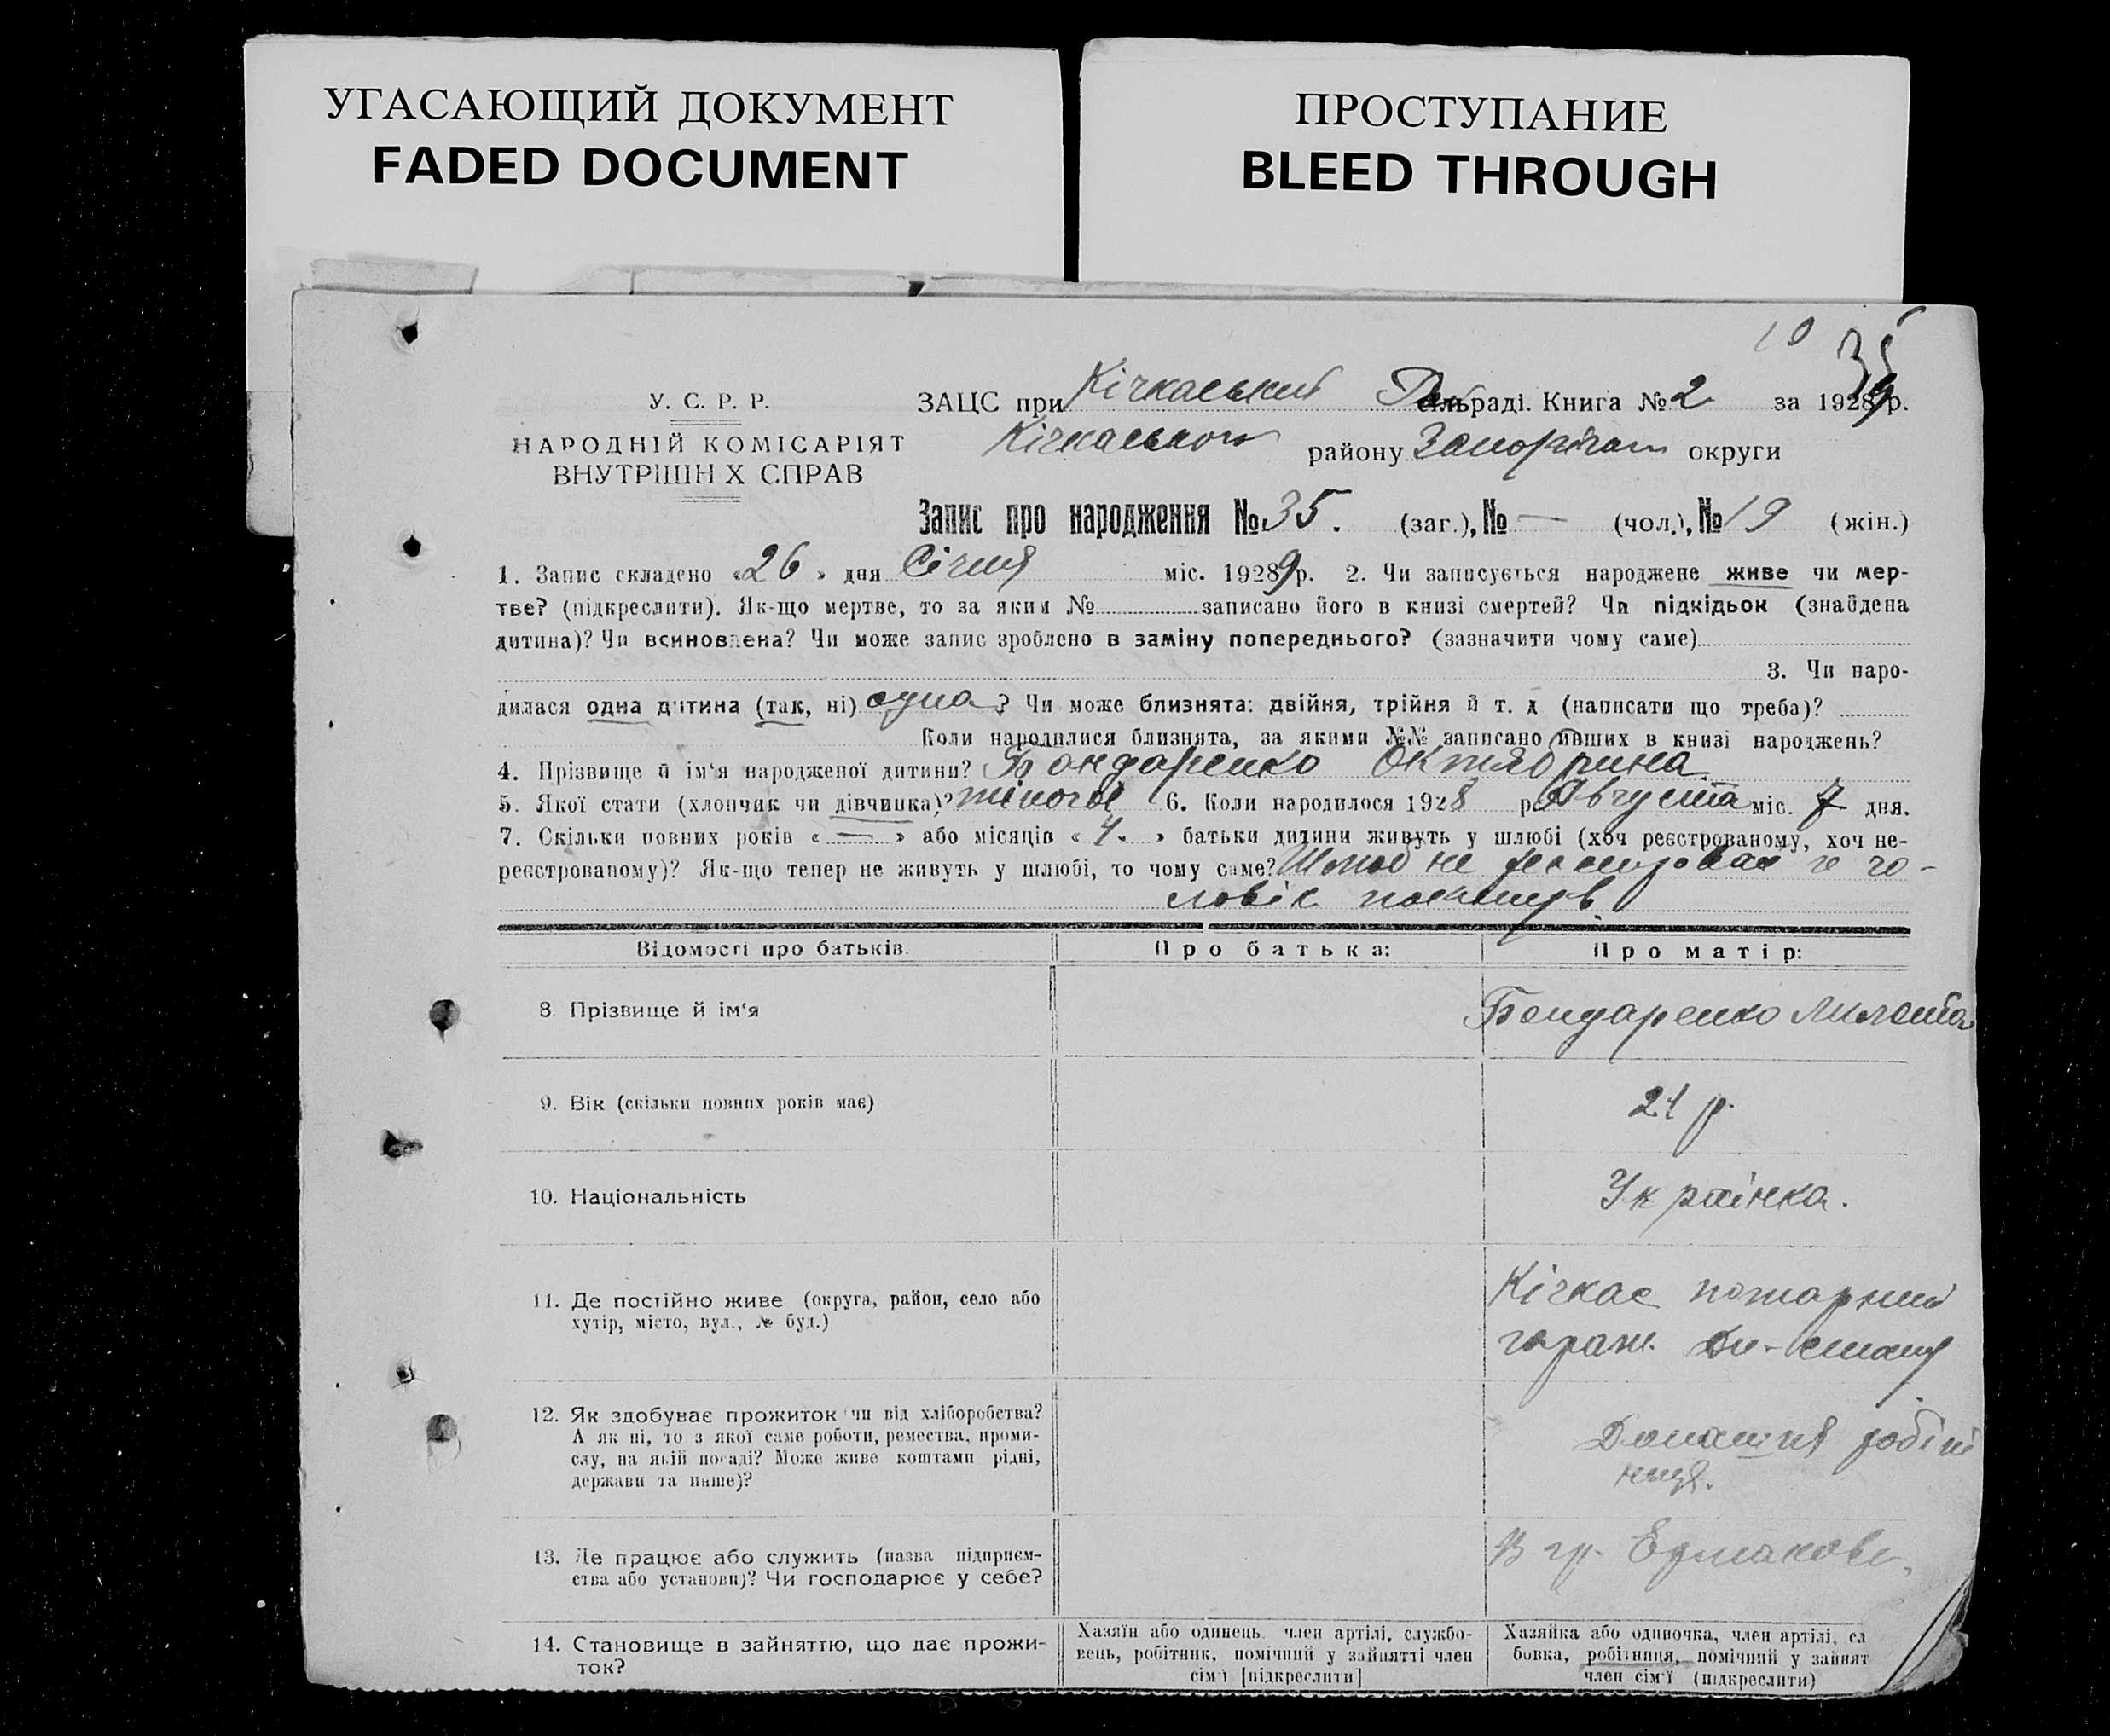 УГАСАЮЩИЙ ДОКУМЕНТ
FADED DOCUMENT
ПРОСТУПАНИЕ
BLEED THROUGH
10 35
У. С. Р. Р.
НАРОДНІЙ КОМІСАРІЯТ
ВНУТРІШН Х СПРАВ
ЗАЦС при Кічкаський сільраді. Книга № 2 за 1929 р.
Кічкаського району Запоріжжя округи
Запис про народження № 35. (заг.), № — (чол.), № 19 (жін.)
1. Запис складено «26» дня Січня міс. 1929 р. 2. Чи записується народжене живе чи мер-
тве? (підкреслити). Як-що мертве, то за яким № записано його в книзі смертей? Чи підкідьок (знайдена
дитина)? Чи всиновлена? Чи може запис зроблено в заміну попереднього? (зазначити чому саме)
3. Чи наро-
дилася одна дитина (так, ні) одна? Чи може близнята: двійня, трійня й т. д (написати що треба)?
Коли народилися близнята, за якими №№ записано инших в книзі народжень?
4. Прізвище й ім'я народженої дитини? Бондаренко Октябрина
5. Якої статі (хлопчик чи дівчинка)? жіночої 6. Коли народилося 1928 р. Августа міс. 7 дня.
7. Скільки повних років «—» або місяців «4.» батьки дитини живуть у шлюбі (хоч реєстрованому, хоч не-
реєстрованому)? Як-що тепер не живуть у шлюбі, то чому саме? Шлюб не чо-
ловік покинув
Відомості про батьків. Про батька: Про матір:
8. Прізвище й ім'я Бондаренко
9. Вік (скільки повних років має) 21 р.
10. Національність Українка.
11. Де постійно живе (округа, район, село або
хутір, місто, вул., № буд.)
Кічкас пожарний
гараж.
12. Як здобуває прожиток (чи від хліборобства?
А як ні, то з якої саме роботи, ремества, проми-
слу, на якій посаді? Може живе коштами рідні,
держави та инше)?
Домашня робіт
ниця.
13. Де працює або служить (назва підприєм-
ства або установи)? Чи господарює у себе?
В гр.
14. Становище в зайняттю, що дає прожи-
ток?
Хазяїн або одинець член артілі, службо-
вець, робітник, помічний у зайнятті член
сім'ї [підкреслити]
Хазяйка або одиночка, член артілі, сл
бовка, робітниця, помічний у зайнят
член сім'ї (підкреслити)